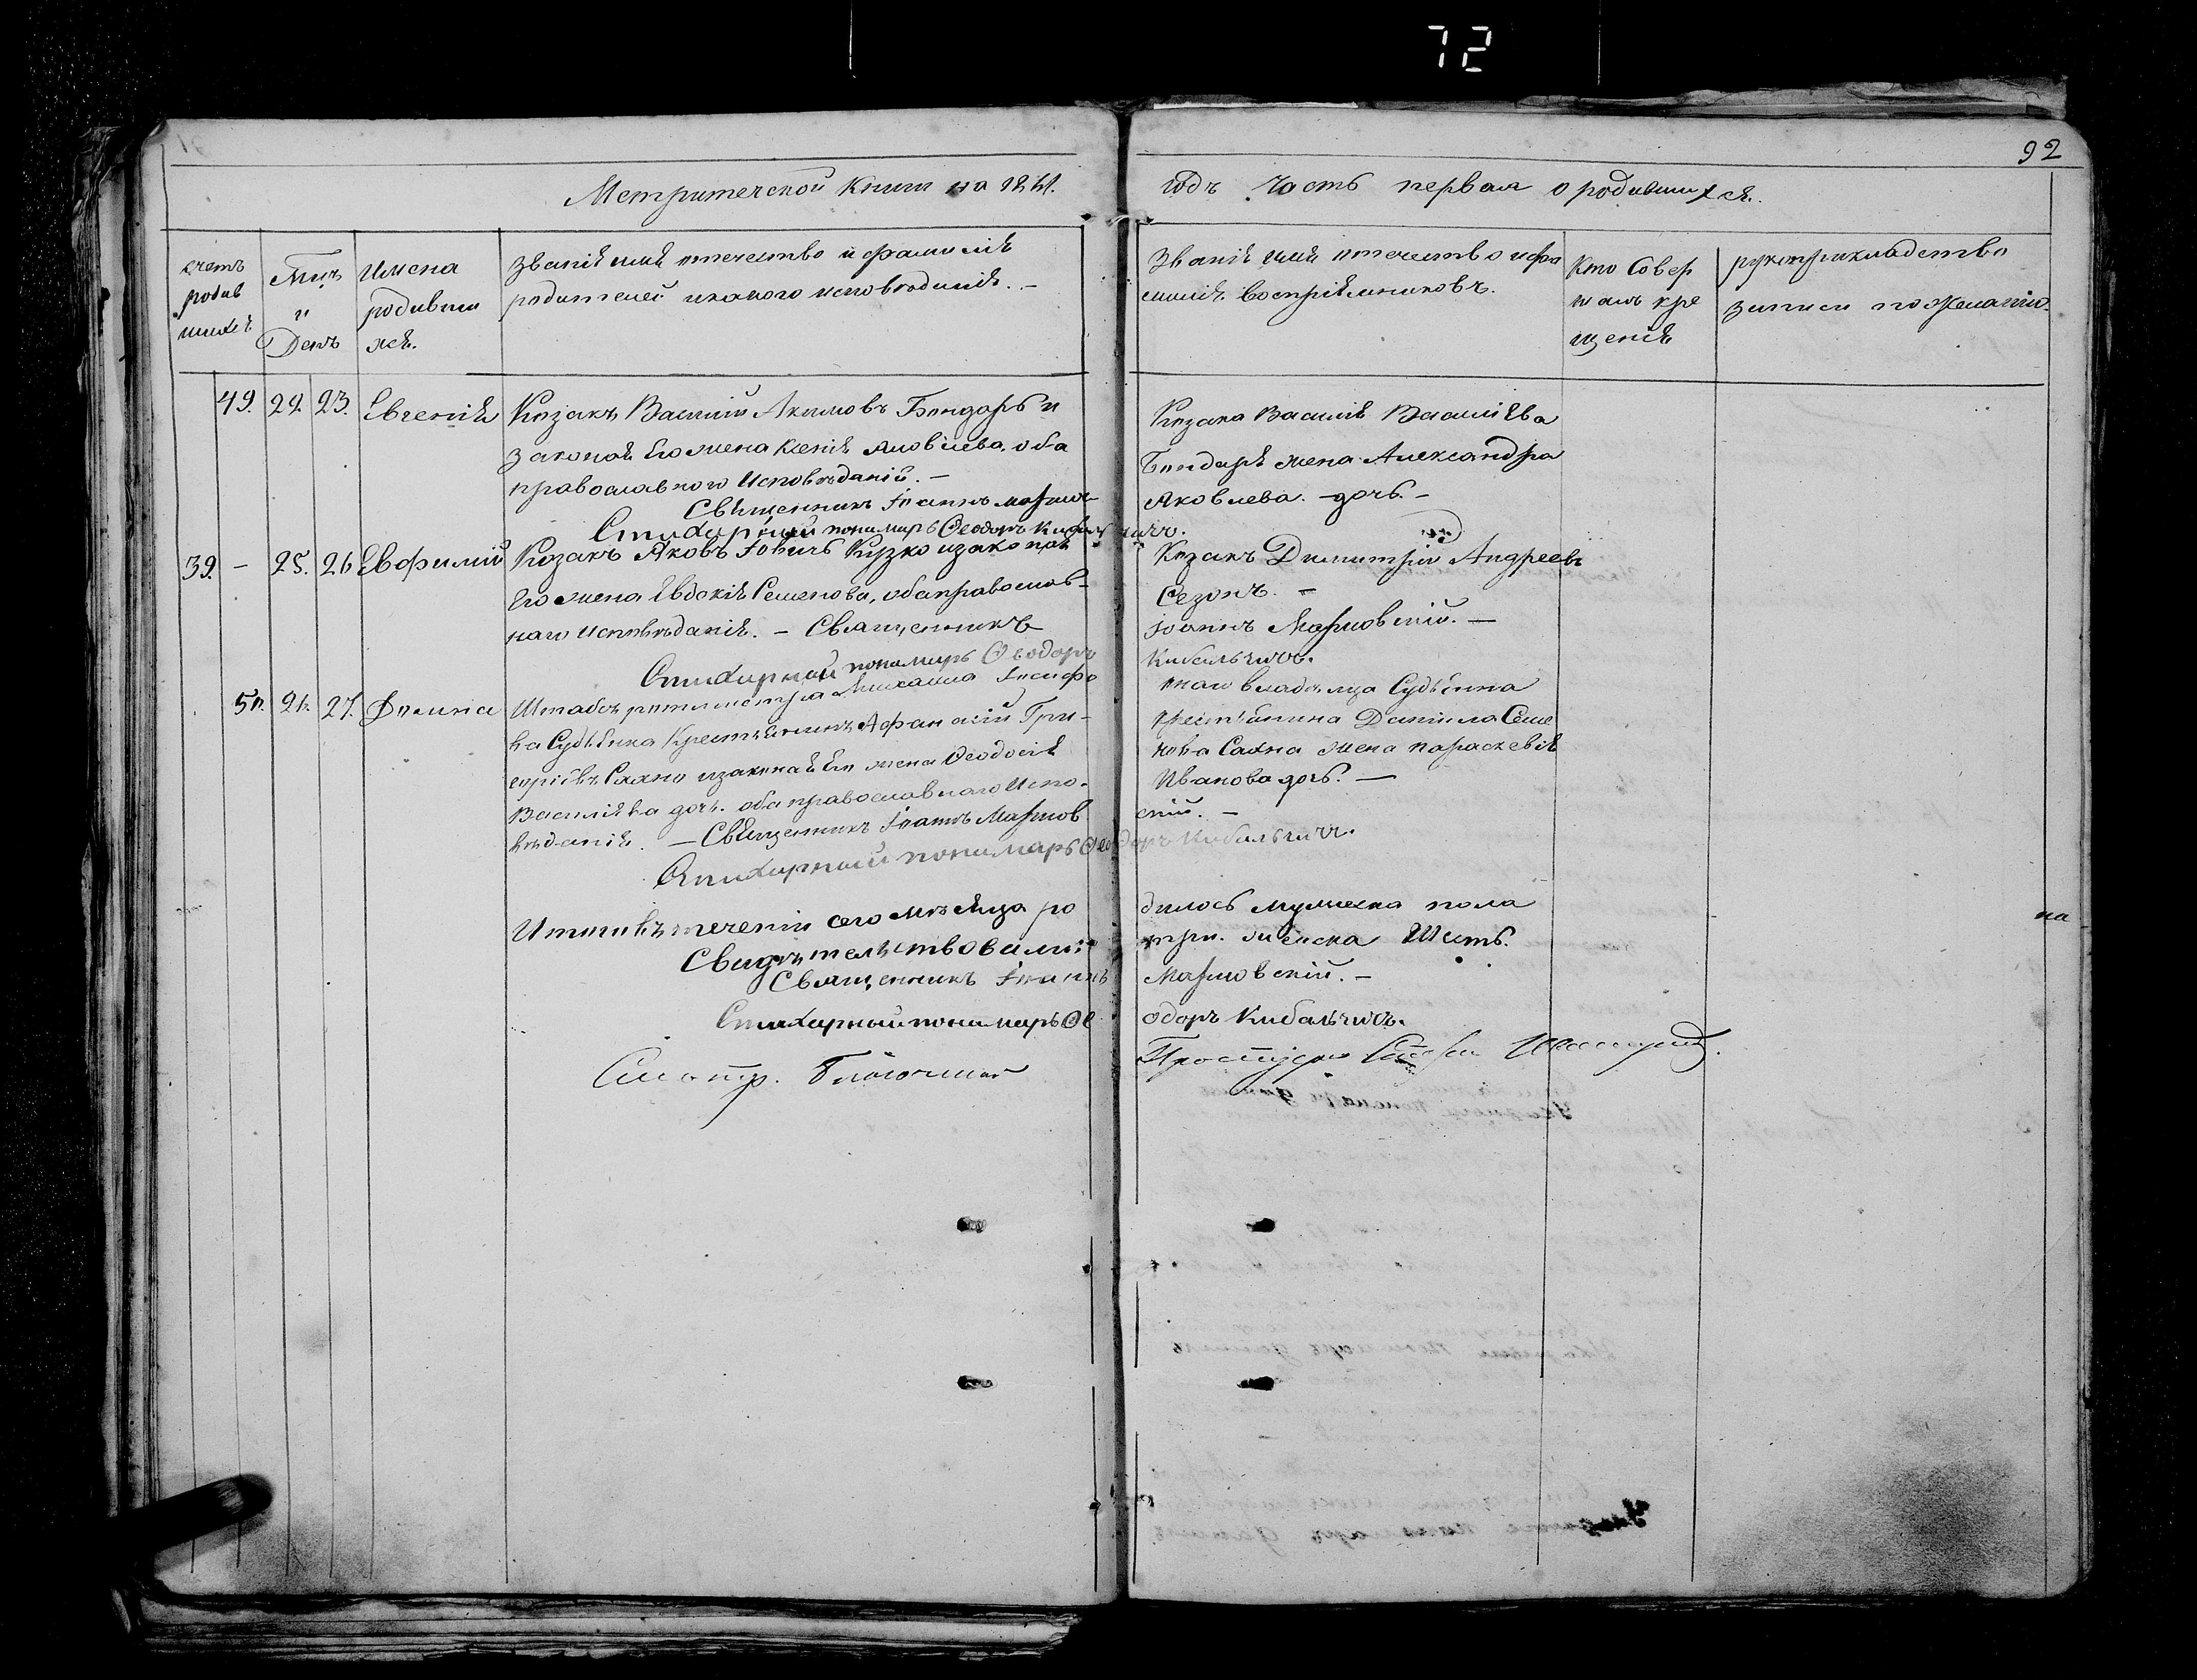 72
92
Метрической Книги на 1841.
годъ Часть первая о родившихся.
счетъ родив шихся
Мцъ и День
Имена родивши хся.
Званіе имя отечество и фамилія
родителей и какого исповѣданія. –
Званіе имя отечество и фа
милія воспріемниковъ.
Кто Совер шалъ кре щеніе
рукоприкладство
записи по желанію.
49. 22. 23. Евгенія
Козакъ Василій Акимовъ Бондарь и
законая Его жена Ксенія Яковлева, оба
православного Исповѣданій. –
Священникъ Іоаннъ
Стихарный пономарь Ѳеодоръ
Козака Василія Василіева
Бондаря жена Александра
Яковлева. – дочь. –
39. – 25. 26 Евфимій
Козакъ Яковъ Іовичъ Кузко и законая
Его жена Евдокія Семенова, оба православ-
наго Исповѣданія. – Священникъ
Стихарный пономарь Ѳеодоръ
Козакъ Димитрій Андреевъ
Сезонъ. –
Іоаннъ Марковскій. –
Кибальчичъ.
50. 26. 27. Домна
Штабсъ ротмистра Михаила Іосифо
ва Судѣенка Крестьянинъ Афанасій Гри-
горіевъ Сахно и законая Его жена Ѳеодосія
Василіева дочь. оба православнаго Испо-
вѣданія. – Священникъ Іоаннъ Марков
Стихарный пономарь Ѳеодоръ Кибальчичъ.
наго владѣльца Судѣенка
крестьянина Даніила Семе
нова Сахна жена Параскевія
Иванова дочь. –
скій. –
Итого въ теченіи сего мѣсяца ро
дилось мужеска пола
на
Свидѣтельствовали:
три. женска Шесть.
Священникъ Іоаннъ
Марковскій. –
Стихарный пономарь Ѳе
одоръ Кибальчичъ.
Смотр.